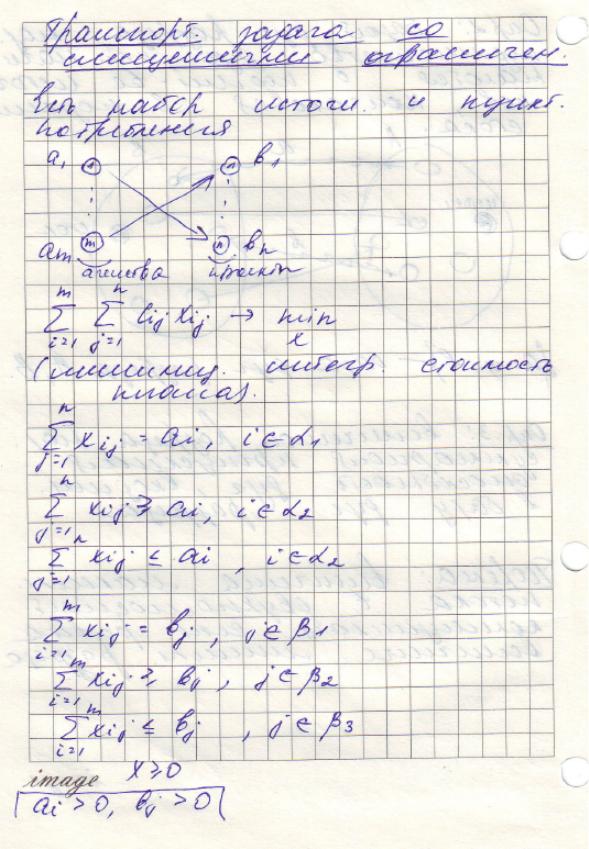 Транспорт. задача со
смешанными ограничен.
Есть набор источн. и пункт.
потребления
a₁ 1 n b₁
⋮ ⋮
aₘ m n bₙ
агенства проекты
∑ᵢ₌₁ᵐ ∑ⱼ₌₁ⁿ cᵢⱼ xᵢⱼ → min x
(минимиз. интегр. стоимость
плана).
∑ⱼ₌₁ⁿ xᵢⱼ = aᵢ, i ∈ α₁
∑ⱼ₌₁ⁿ xᵢⱼ ≥ aᵢ, i ∈ α₂
∑ⱼ₌₁ⁿ xᵢⱼ ≤ aᵢ, i ∈ α₂
∑ᵢ₌₁ᵐ xᵢⱼ = bⱼ, j ∈ β₁
∑ᵢ₌₁ᵐ xᵢⱼ ≥ bⱼ, j ∈ β₂
∑ᵢ₌₁ᵐ xᵢⱼ ≤ bⱼ, j ∈ β₃
image x ≥ 0
aᵢ > 0, bⱼ > 0